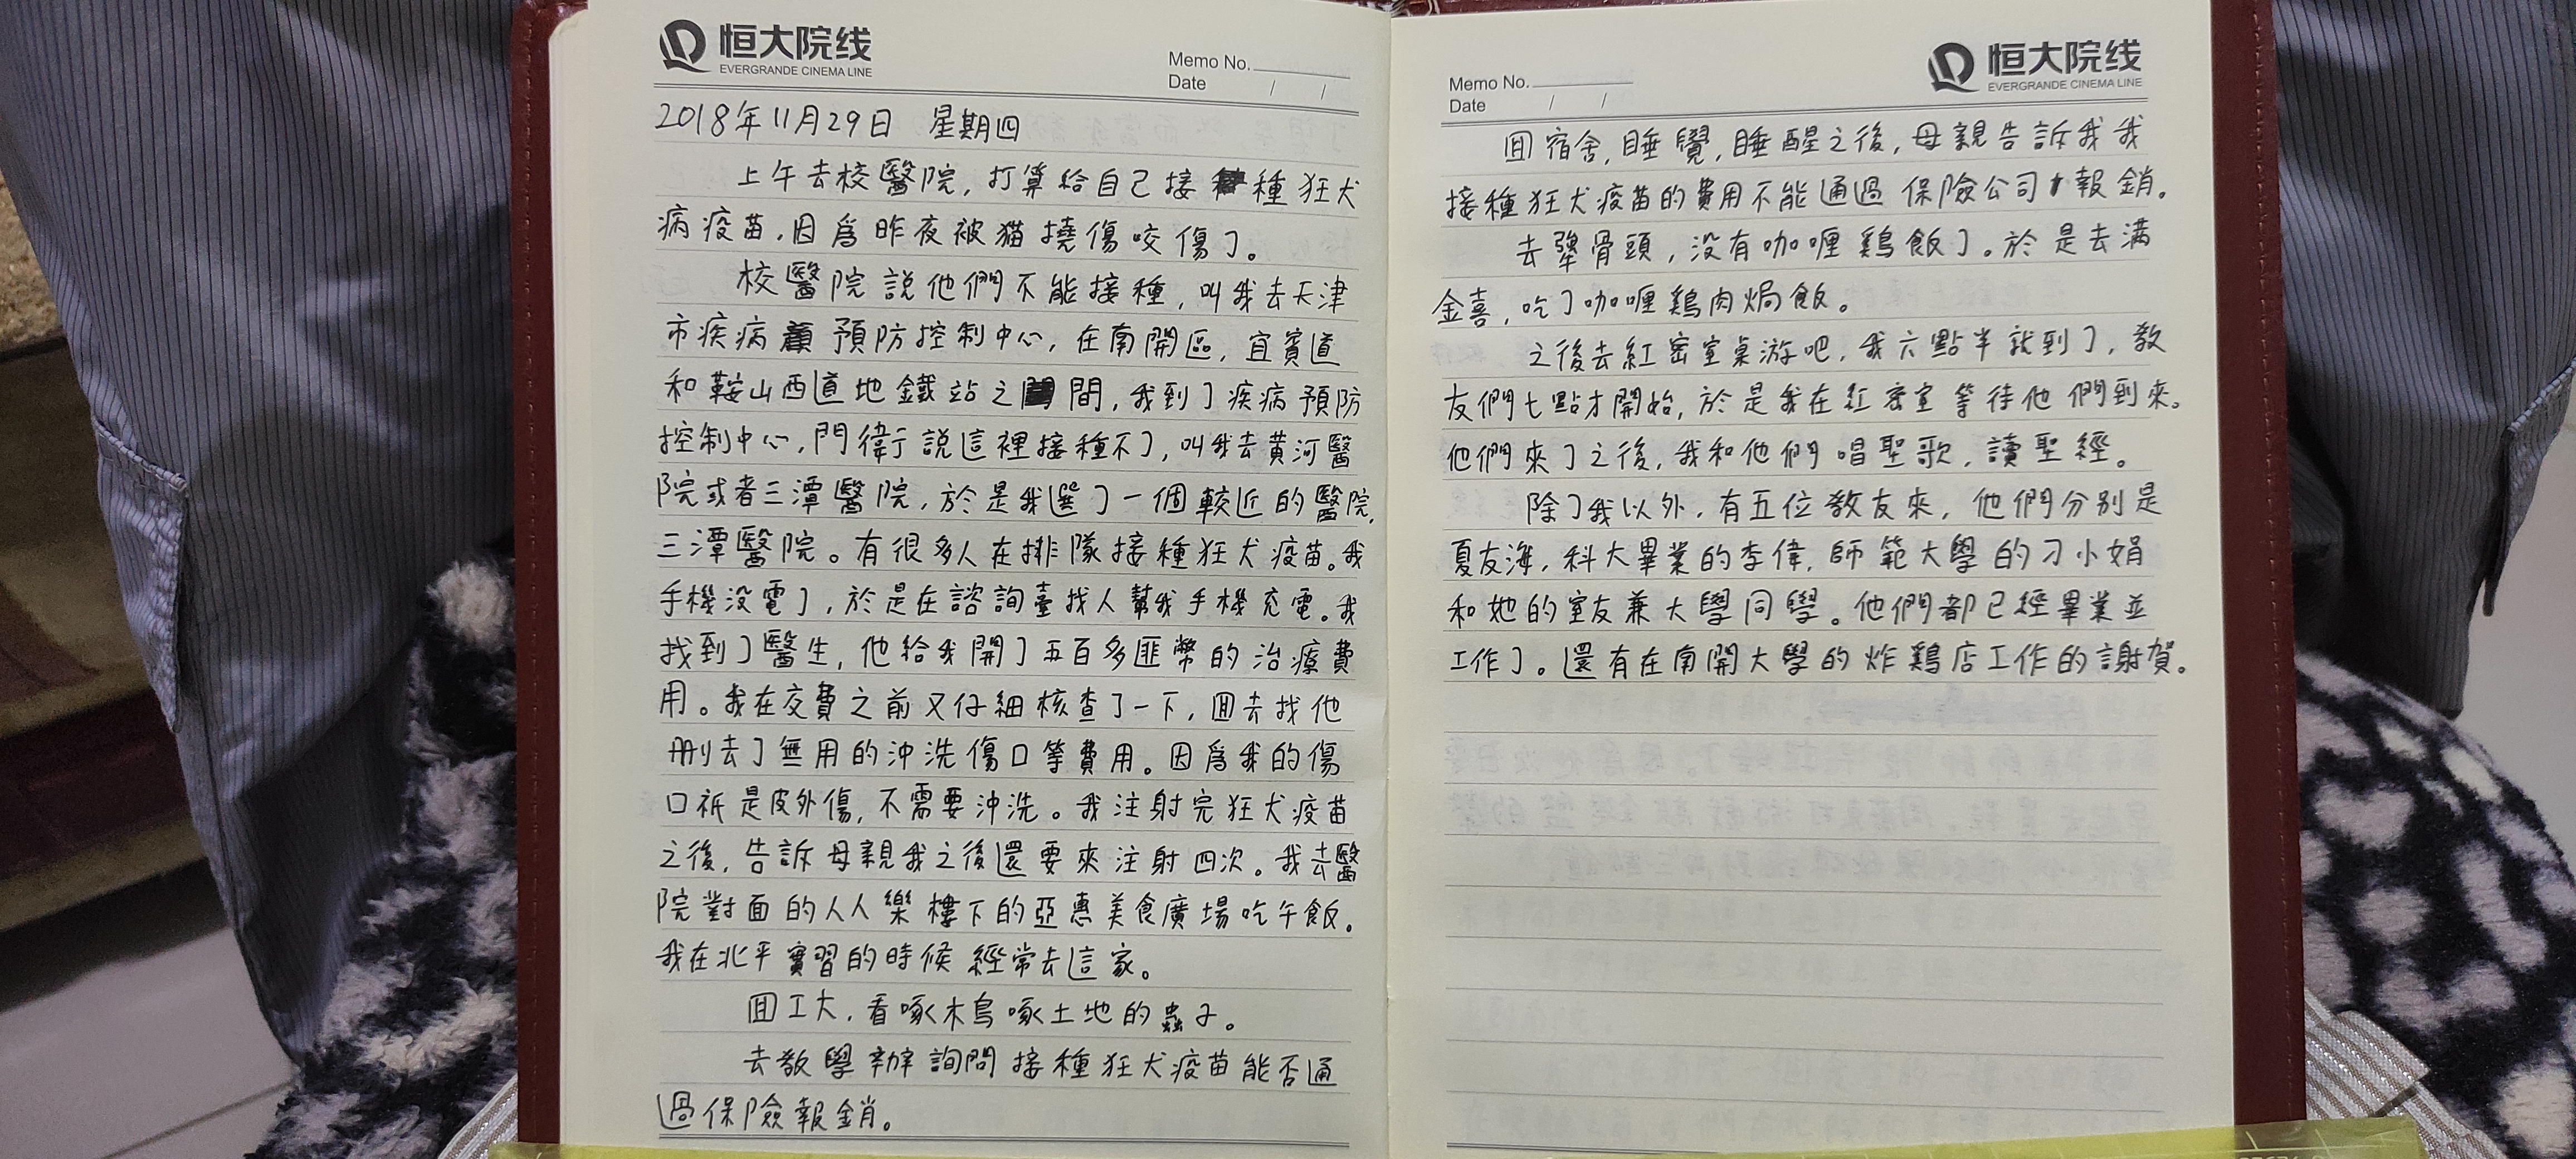 恒大院线
EVERGRANDE CINEMA LINE
Memo No.
Date / /
2018年11月29日 星期四
上午去校醫院,打算給自己接種狂犬
病疫苗,因爲昨夜被猫撓傷咬傷了。
校醫院説他們不能接種,叫我去天津
市疾病預防控制中心,在南開區,宜賓道
和鞍山西道地鐵站之間,我到了疾病預防
控制中心,門衛説這裡接種不了,叫我去黄河醫
院或者三潭醫院,於是我選了一個較近的醫院,
三潭醫院。有很多人在排隊接種狂犬疫苗。我
手機没電了,於是在諮詢臺找人幫我手機充電。我
找到了醫生,他給我開了五百多匪幣的治療費
用。我在交費之前又仔細核查了一下,囬去找他
刪去了無用的沖洗傷口等費用。因爲我的傷
口祇是皮外傷,不需要沖洗。我注射完狂犬疫苗
之後,告訴母親我之後還要來注射四次。我去醫
院對面的人人樂樓下的亞惠美食廣場吃午飯。
我在北平實習的時候經常去這家。
囬工大,看啄木鳥啄土地的蟲子。
去教學辦詢問接種狂犬疫苗能否通
過保險報銷。
恒大院线
EVERGRANDE CINEMA LINE
Memo No.
Date / /
囬宿舍,睡覺,睡醒之後,母親告訴我我
接種狂犬疫苗的費用不能通過保險公司報銷。
去犟骨頭,没有咖喱鷄飯了。於是去满
金喜,吃了咖喱鷄肉焗飯。
之後去紅密室桌游吧,我六點半就到了,教
友們七點才開始,於是我在紅密室等待他們到來。
他們來了之後,我和他們唱聖歌,讀聖經。
除了我以外,有五位教友來,他們分别是
夏友海,科大畢業的李偉,師範大學的刁小娟
和她的室友兼大學同學。他們都已經畢業並
工作了。還有在南開大學的炸鷄店工作的謝賀。